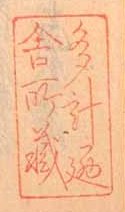 多計廼
舎所蔵